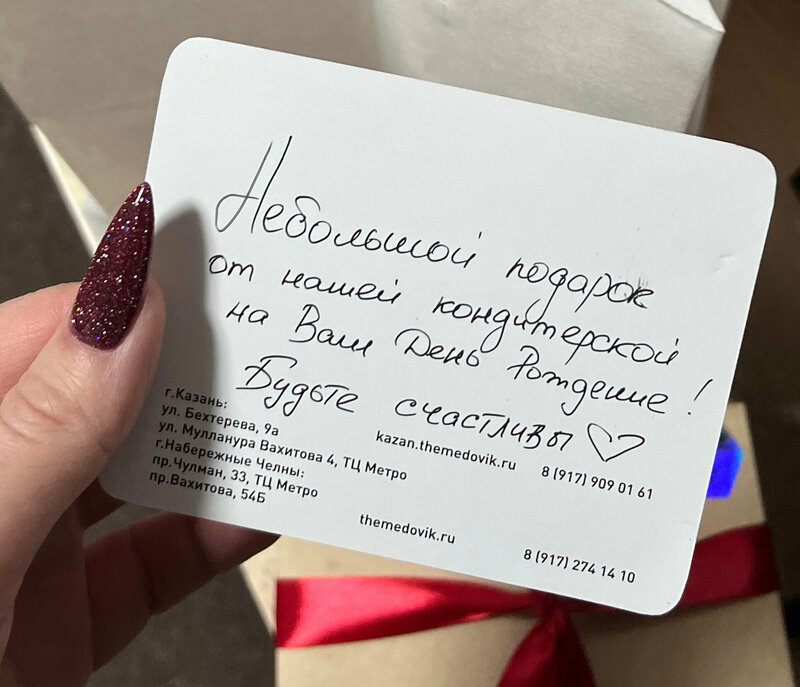 Небольшой подарок
от нашей кондитерской
на Ваш День Рождение!
Будьте счастливы ♡
г.Казань:
ул. Бехтерева, 9а
ул. Мулланура Вахитова 4, ТЦ Метро
г.Набережные Челны:
пр.Чулман, 33, ТЦ Метро
пр.Вахитова, 54Б
kazan.themedovik.ru 8 (917) 909 01 61
themedovik.ru 8 (917) 274 14 10